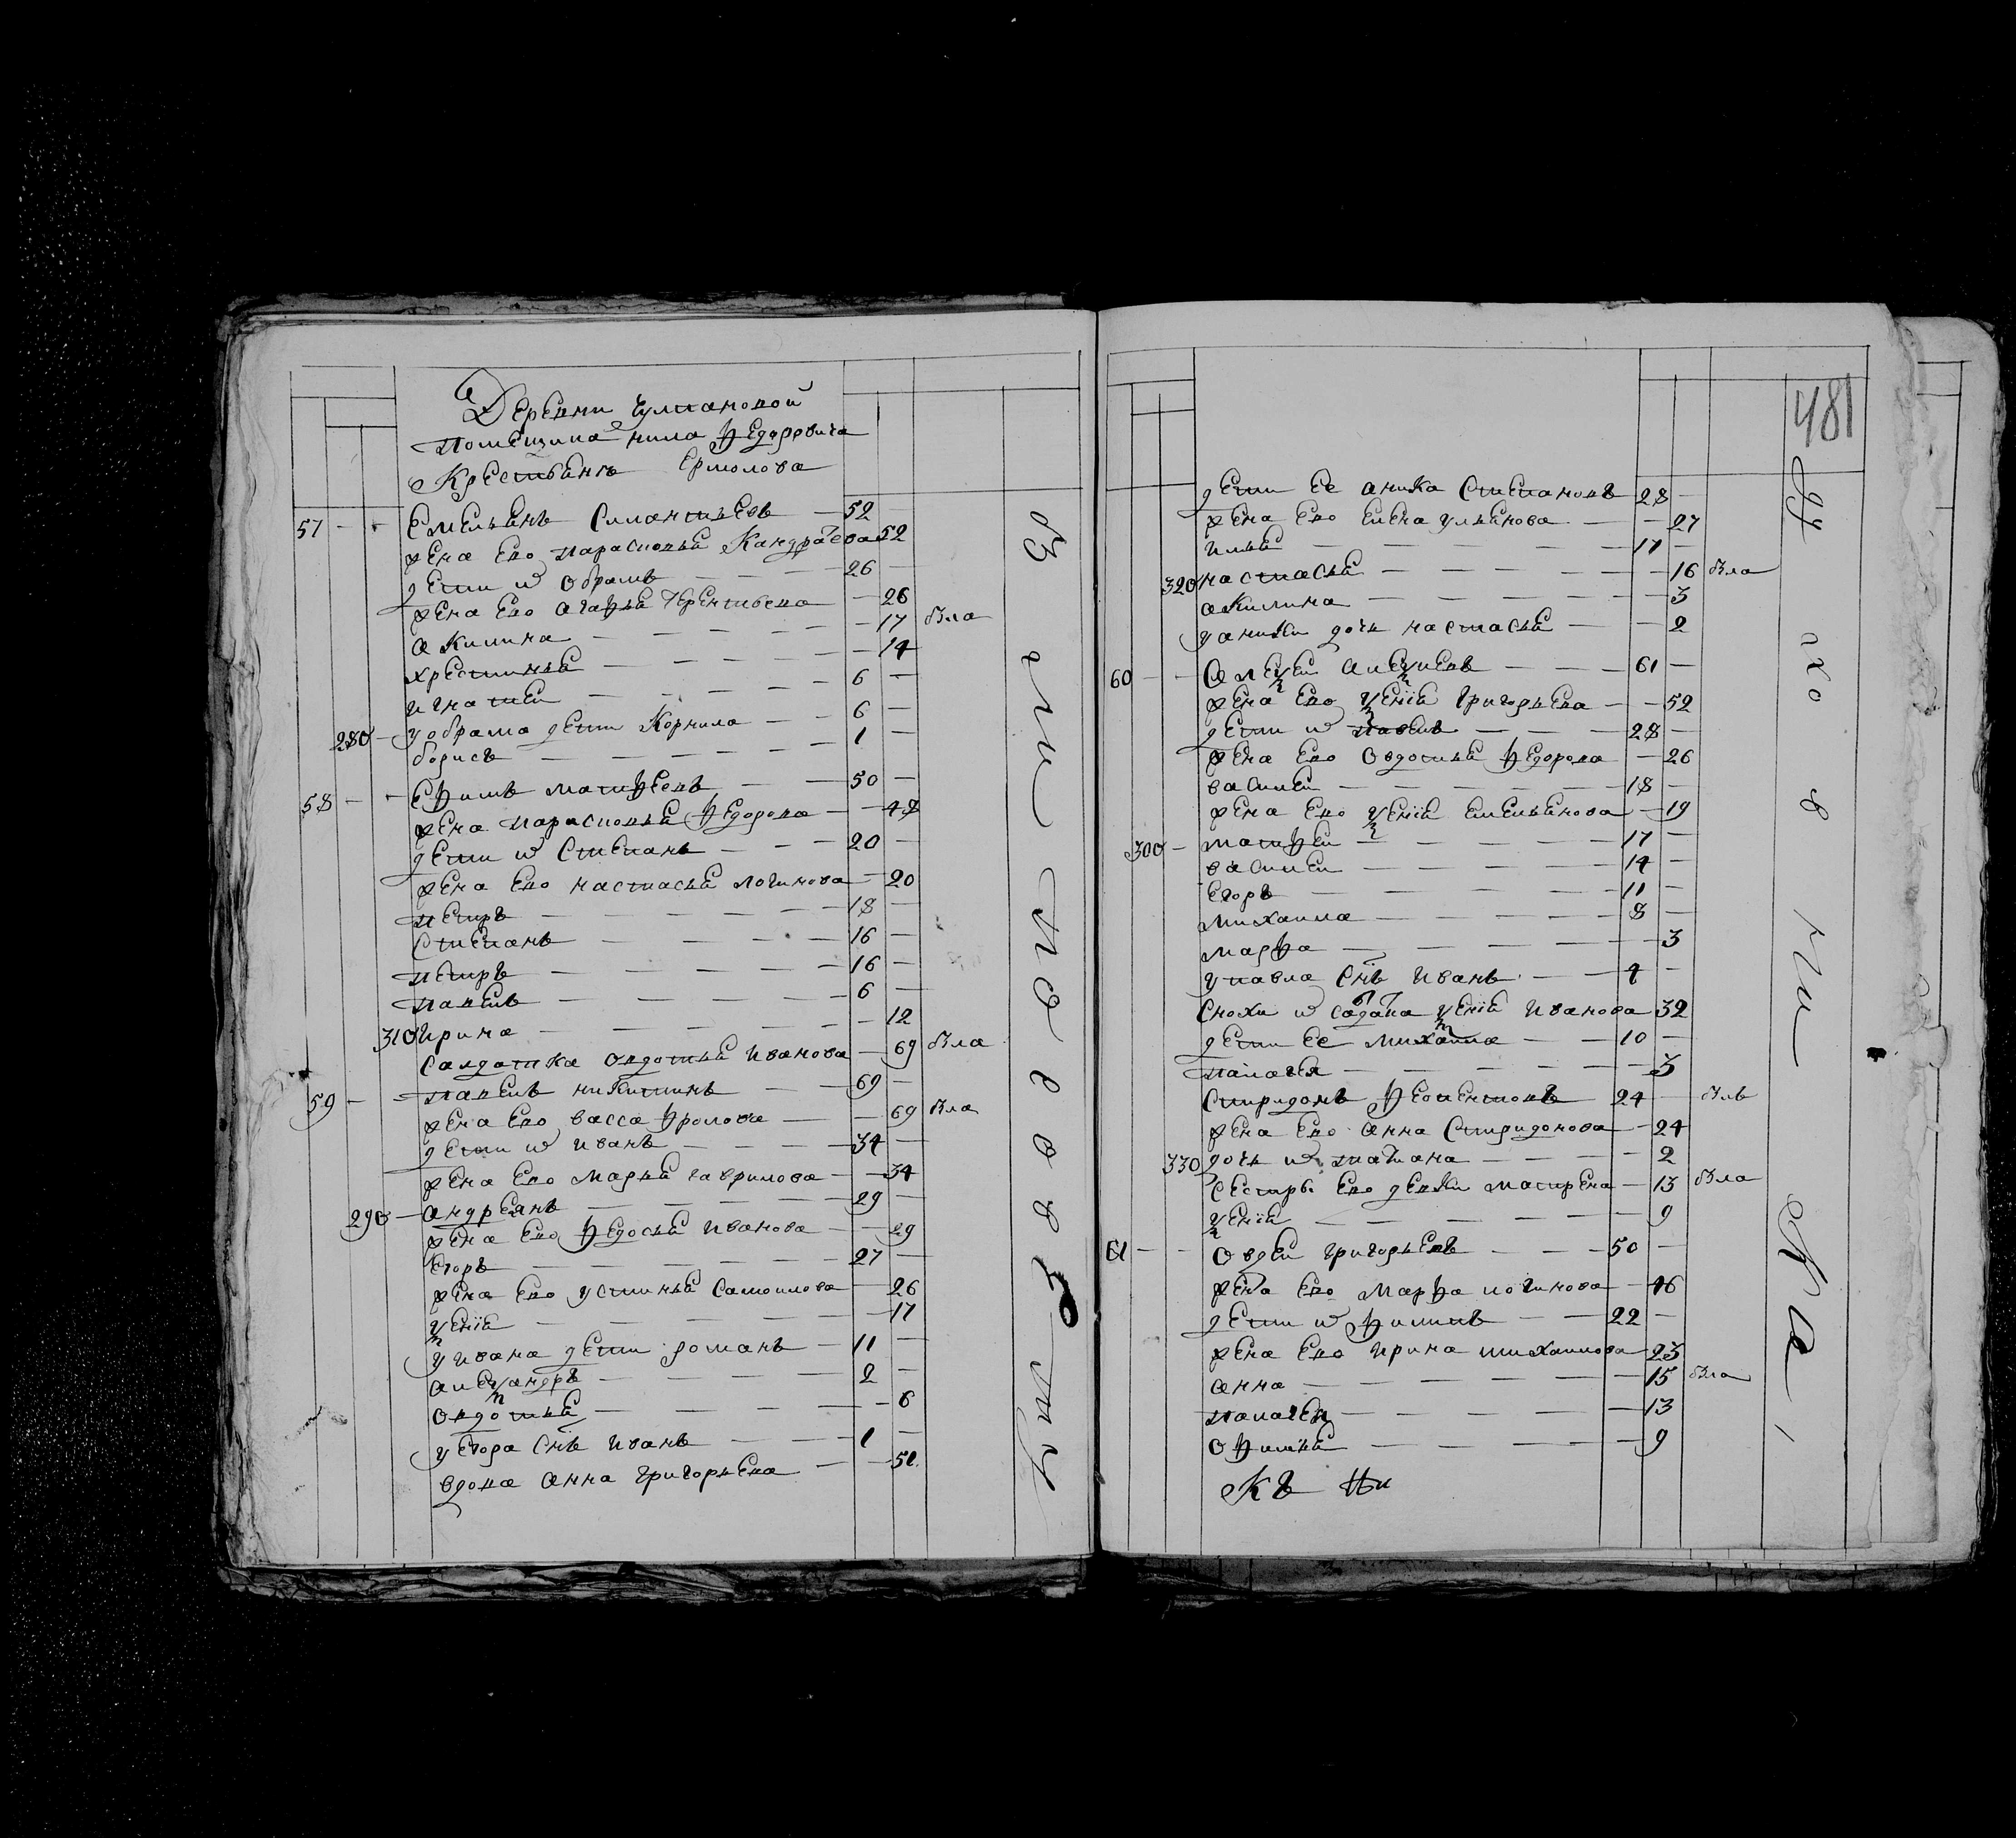 Деревни Чулпановой
помещика нила Ѳедоровича
Крестьянъ Ермолова
57 - - Емельянъ Силантьевъ — 52
жена Ево парасковья Кандратева 52
дети их обрамъ — 26 —
жена Ево Агафья Терентьева — 26
Акилина — 17 бла
хрестинья — 14
игнатей — 6 —
280 - у обрама дети Корнила — 6 —
борисъ — 1 —
58 - - Ефимъ матфеевъ — 50 —
жена парасковья Федорова — 48
дети их Степанъ — 20 —
жена Ево настасья логинова — 20
петръ — 18 —
Степанъ — 16 —
петръ — 16 —
павелъ — 6 —
310 Ирина — 12
Салдатка овдотья Иванова — 69 бла
59 - - павелъ никитинъ — 69 —
жена Ево васса фролова — 69 бла
дети их иванъ — 34 —
жена Ево марья гаврилова — 34
290 - андреянъ — 29 —
жена Ево федосья Иванова — 29
Егоръ — 27 —
жена Ево устинья Самоилова — 26
ксенія — 17
у ивана дети романъ — 11 —
александръ — 2 —
овдотья — 6
у Егора Снъ иванъ — 1 —
вдова анна григорьева — 51
481
дети Ее аника Степановъ 28 —
жена Ево Елена ульянова — 27
илья — 17 —
320 настасья — 16 бла
акилина — 3
у аники дочь настасья — 2
60 - - Алексеи алексеевъ — 61 —
жена Ево ксенія григорьева — 52
дети их павелъ — 28 —
жена Ево овдотья федорова — 26
василеи — 18 —
жена Ево ксенія Емельянова — 19
300 - матфеи — 17 —
василеи — 14 —
Егоръ — 11 —
михаила — 8 —
марфа — 3
у павла Снъ иванъ — 4 —
Снохи их ксенія Иванова 32
дети Ее михаила — 10 —
палагея — 3
Спиридонъ — 24 — блъ
жена Ево анна Спиридонова — 24
330 дочь их татиана — 2
Сестры Ево девки матрена — 13 бла
ксенія — 9
61 - - овдеи григорьевъ — 50 —
жена Ево марфа логинова — 46
дети их филипъ — 22 —
жена Ево ирина михаилова — 23
анна — 15 бла
палагея — 13
офимья — 9